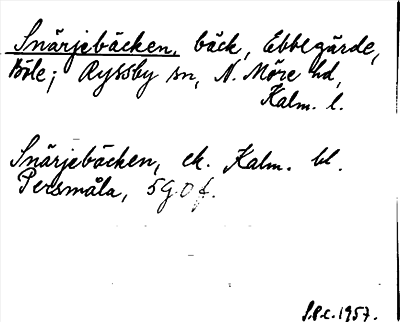 Snärjebäcken, bäck, Ebbegärde,
Böle; Ryssby sn, N. Möre hd,
Kalm. l.
Snärjebäcken, ek. Kalm. bl.
Persmåla, 5 G.O f.
1957.